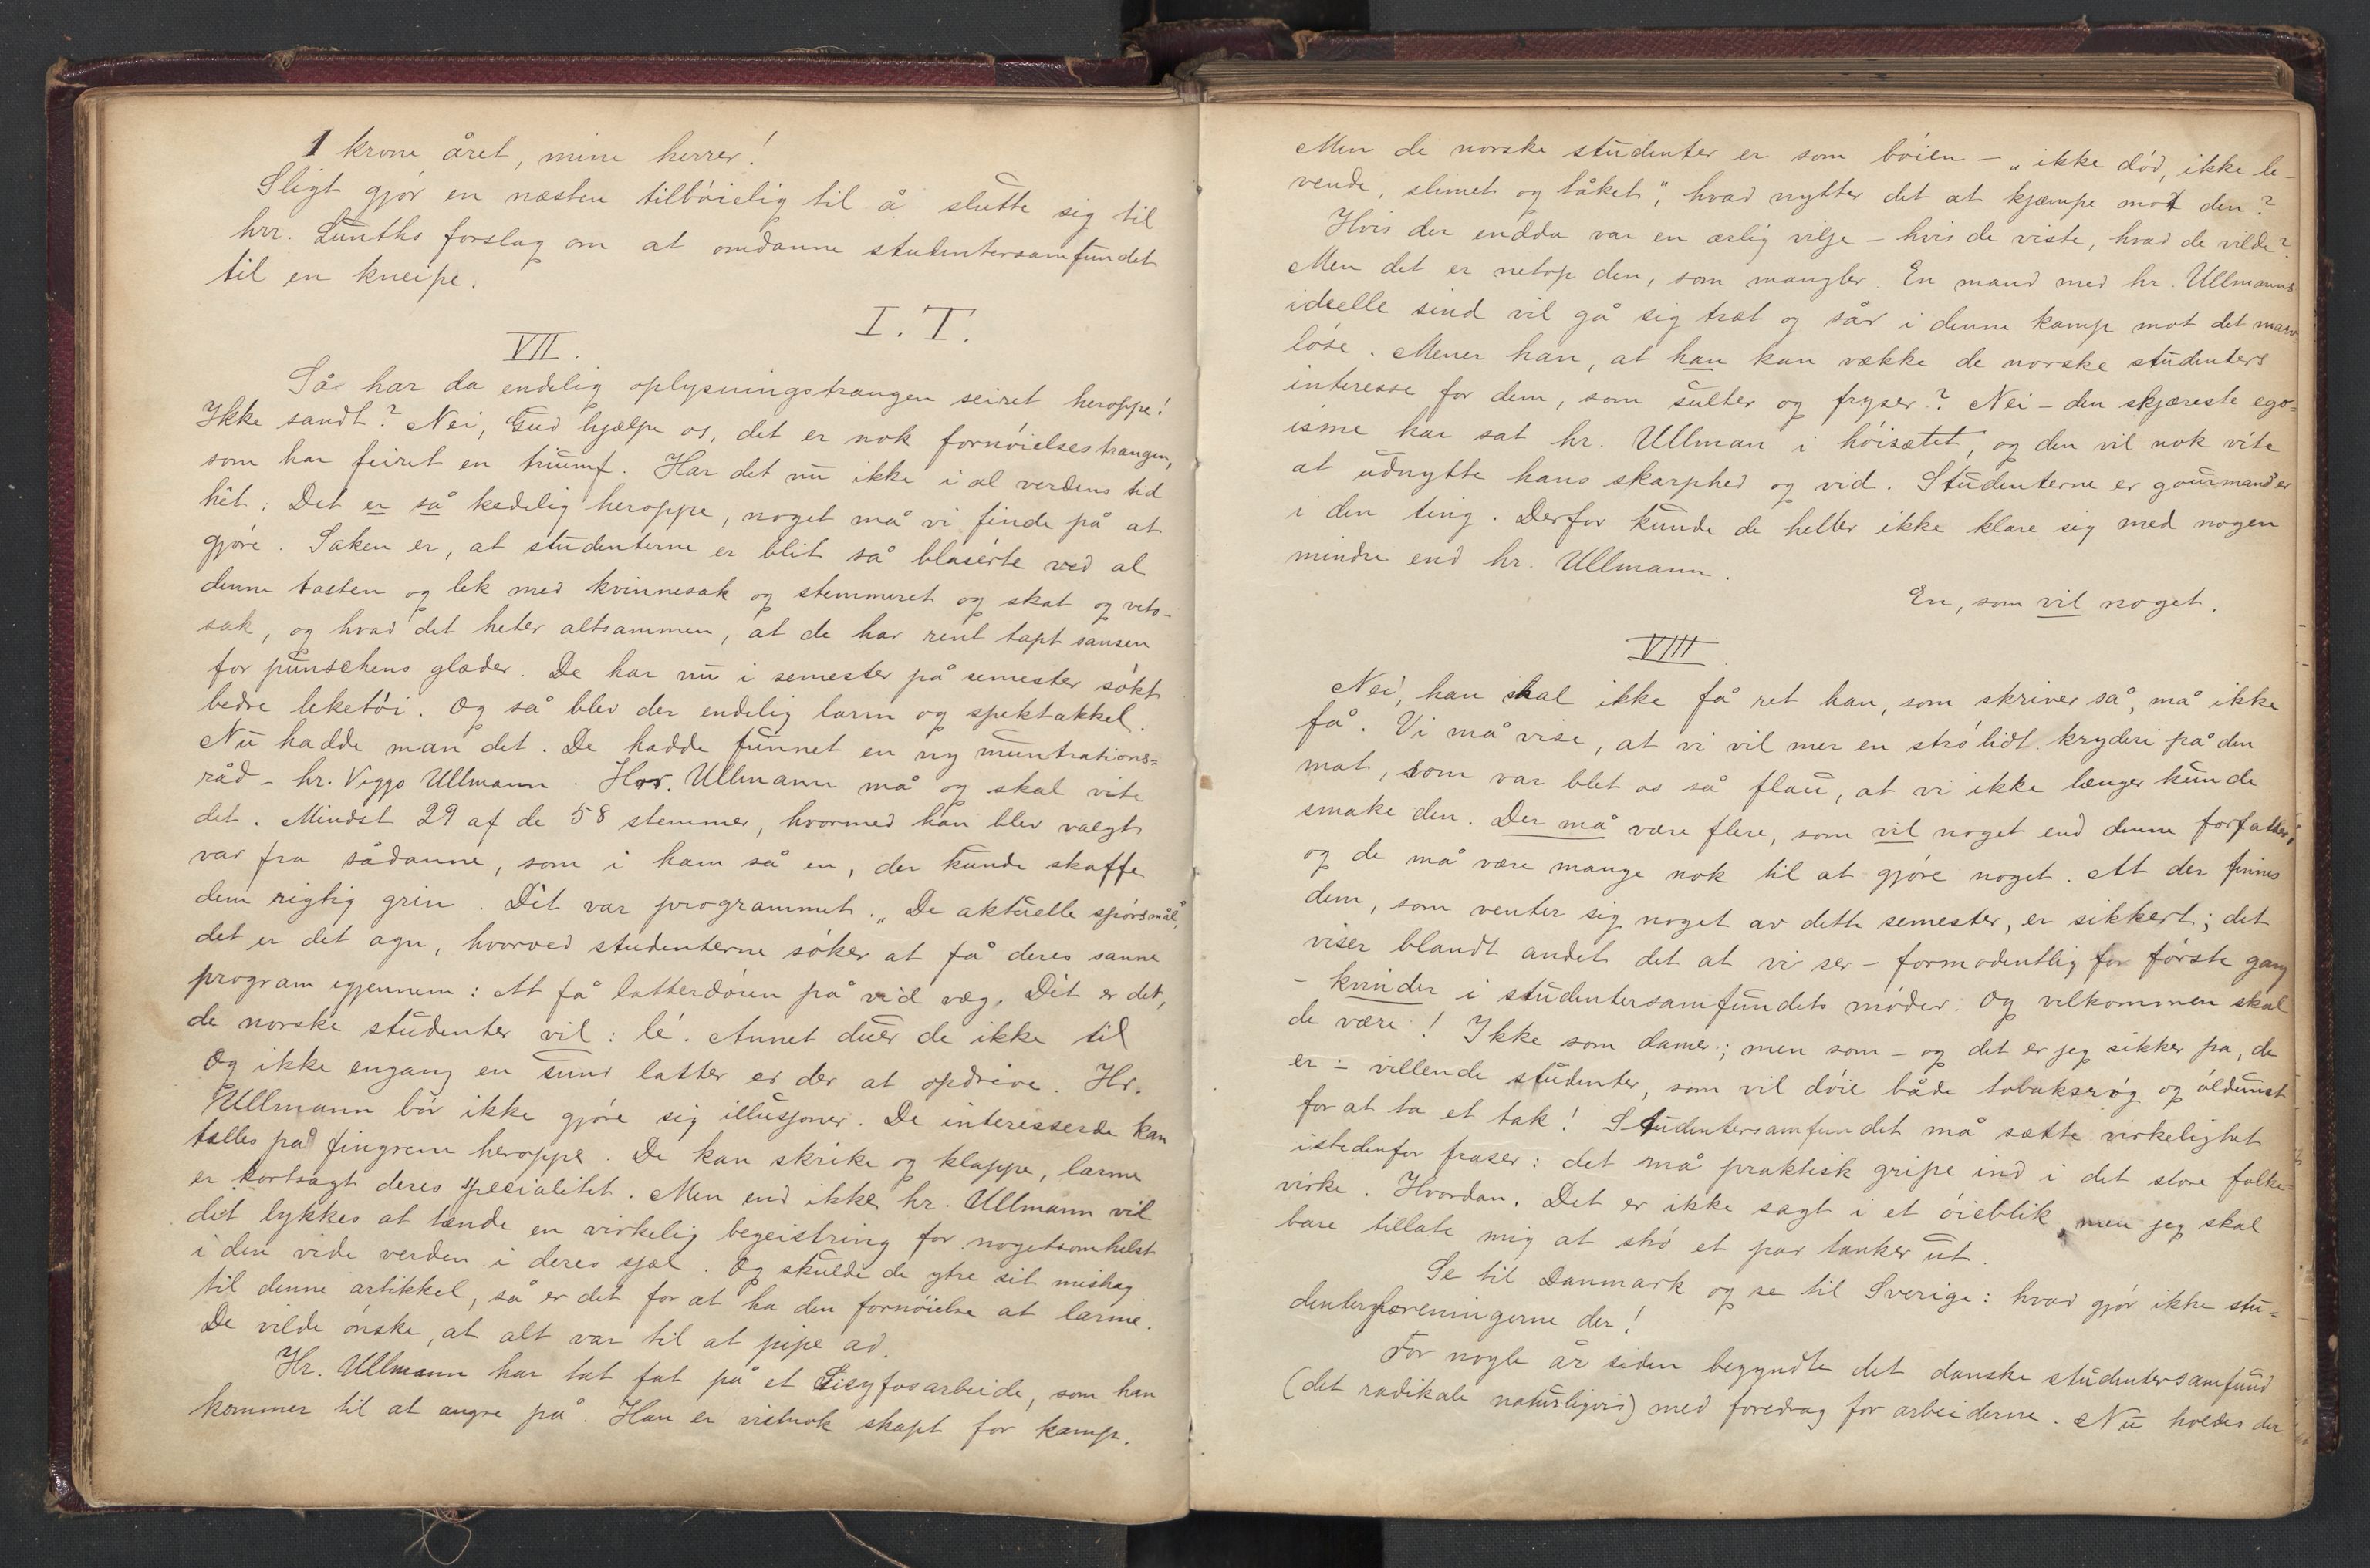 1 krone året, mine herrer!
Sligt gjór en næsten tilbóielig til å slutte sig til
hrr. Lunths forslag om at omdanne studentersamfundet
til en kneipe.
I. T.
VII.
Så har da endelig oplysningstrangen seiret heroppe!
Ikke sandt? Nei, Gud hjælpe os, det er nok fornóielsestrangen,
som har feiret en triumf. Har det nu ikke i al verdens tid
hét: Det er så kedelig heroppe, noget må vi finde på at
gjóre. Saken er, at studenterne er blit så blaserte ved al
denne tasten og lek med kvinnesak og stemmeret og skat og veto-
sak, og hvad det heter altsammen, at de har rent tapt sansen
for punschens glæder. De har nu i semester på semester sókt
bedre leketói. Og så blev der endelig larm og spektakkel.
Nu hadde man det. De hadde funnet en ny muntrations=
råd - hr. Viggo Ullmann. Hrr. Ullmann må og skal vite
det. Mindst 29 af de 58 stemmer, hvormed han blev valgt
var fra sådanne, som i ham så en, der kunde skaffe
dem rigtig grin. Dét var programmet. „De aktuelle spórsmål",
det er det agn, hvorved studenterne sóker at få deres sanne
program igjennem: At få latterdóren på vid væg. Dét er det,
de norske studenter vil: lé. Annet duer de ikke til
Og ikke engang en sund latter er der at opdrive. Hr.
Ullmann bór ikke gjóre sig illusjoner. De interesserede kan
tælles på fingrene heroppe. De kan skrike og klappe, larme
er kortsagt deres specialitet. Men end ikke hr. Ullmann vil
det lykkes at tænde en virkelig begeistring for nogetsomhelst
i den vide verden i deres sjæl. Og skulde de ytre sit mishag
til denne artikkel, så er det for at ha den fornóielse at larme.
De vilde ónske, at alt var til at pipe ad.
Hr. Ullmann har tat fat på et Sisyfosarbeide, som han
kommer til at angre på. Han er vistnok skapt for kamp.
Men de norske studenter er som bóien - „ikke dód, ikke le-
vende, slimet og tåket", hvad nytter det at kjæmpe mot den?
Hvis der endda var en ærlig vilje - hvis de viste, hvad de vilde?
Men det er netop den, som mangler. En mand med hr. Ullmanns
ideelle sind vil gå sig træt og sår i denne kamp mot det marv-
lóse. Mener han, at han kan vække de norske studenters
interesse for dem, som sulter og fryser? Nei - den skjæreste ego=
isme har sat hr. Ullman i hóisætet, og den vil nok vite
at udnytte hans skarphed og vid. Studenterne er gourmand'er
i den ting. Derfor kunde de heller ikke klare sig med nogen
mindre end hr. Ullmann.
En, som vil noget.
VIII
Nei, han skal ikke få ret han, som skriver så, må ikke
få. Vi må vise, at vi vil mer en stró lidt kryderi på den
mat, som var blet os så flau, at vi ikke længer kunde
smake den. Der må være flere, som vil noget end denne forfatter;
og de må være mange nok til at gjóre noget. At der finnes
dem, som venter sig noget av dette semester, er sikkert; det
viser blandt andet det at vi ser - formodentlig for fórste gang
- kvinder i studentersamfundets móder. Og velkommen skal
de være! Ikke som damer; men som - og det er jeg sikker på, de
er - villende studenter, som vil dóie både tobaksróg og óldunst
for at ta et tak! Studentersamfundet må sætte virkelighet
istedenfor fraser: det må praktisk gripe ind i det store folke=
virke. Hvordan. Det er ikke sagt i et óieblik, men jeg skal
bare tillate mig at stró et par tanker ut.
Se til Danmark og se til Sverige: hvad gjór ikke stu=
denterforeningerne der!
For nogle år siden begyndte det danske studentersamfund
(det radikale naturligvis) med foredrag for arbeiderne. Nu holdes der